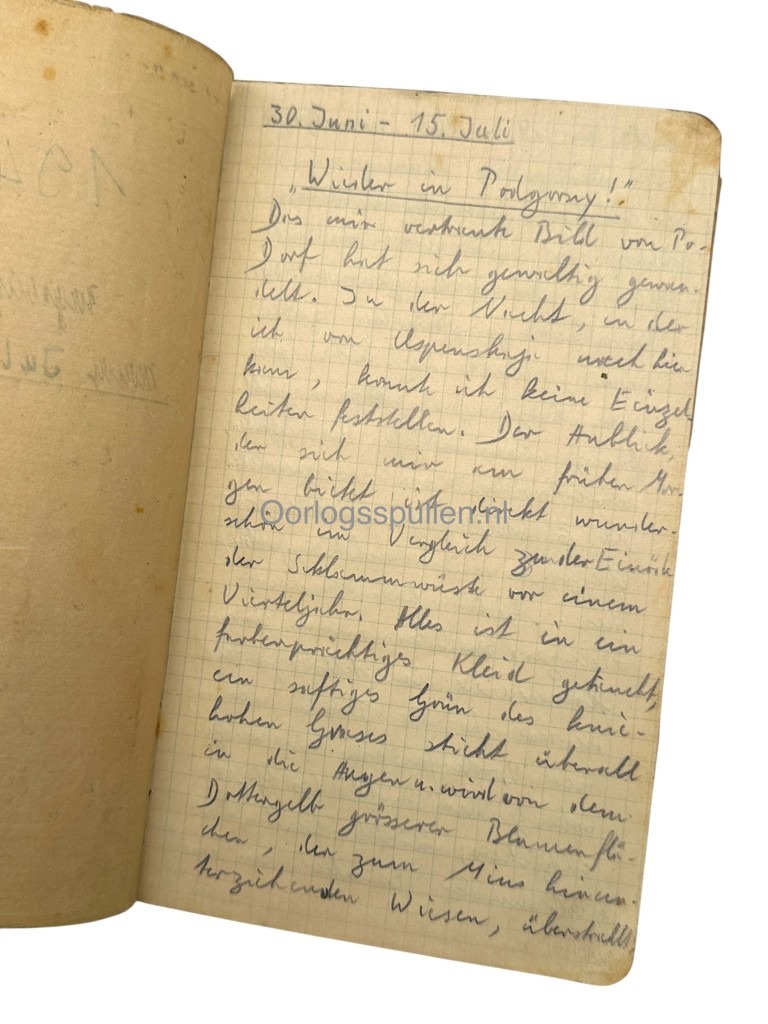 30. Juni - 15. Juli
"Wieder in Podgorny!"
Das mir vertraute Bild von Po-
Dorf hat sich gewaltig gewan-
delt. In der Nacht, in der
ich von Uspenskaji nach hier
kam, konnte ich keine Einzel-
heiten feststellen. Der Anblick,
der sich mir am frühen Mor-
gen bietet ist direkt wunder-
schön im Vergleich zu der Einöde
der Schlammwüste vor einem
Vierteljahr. Alles ist in ein
farbenprächtiges Kleid getaucht,
ein saftiges Grün des knie-
hohen Grases sticht überall
in die Augen u. wird von dem
Dottergelb grösserer Blumenflä-
chen, der zum Mius hinun-
terziehenden Wiesen, überstrahlt,
Oorlogsspullen.nl